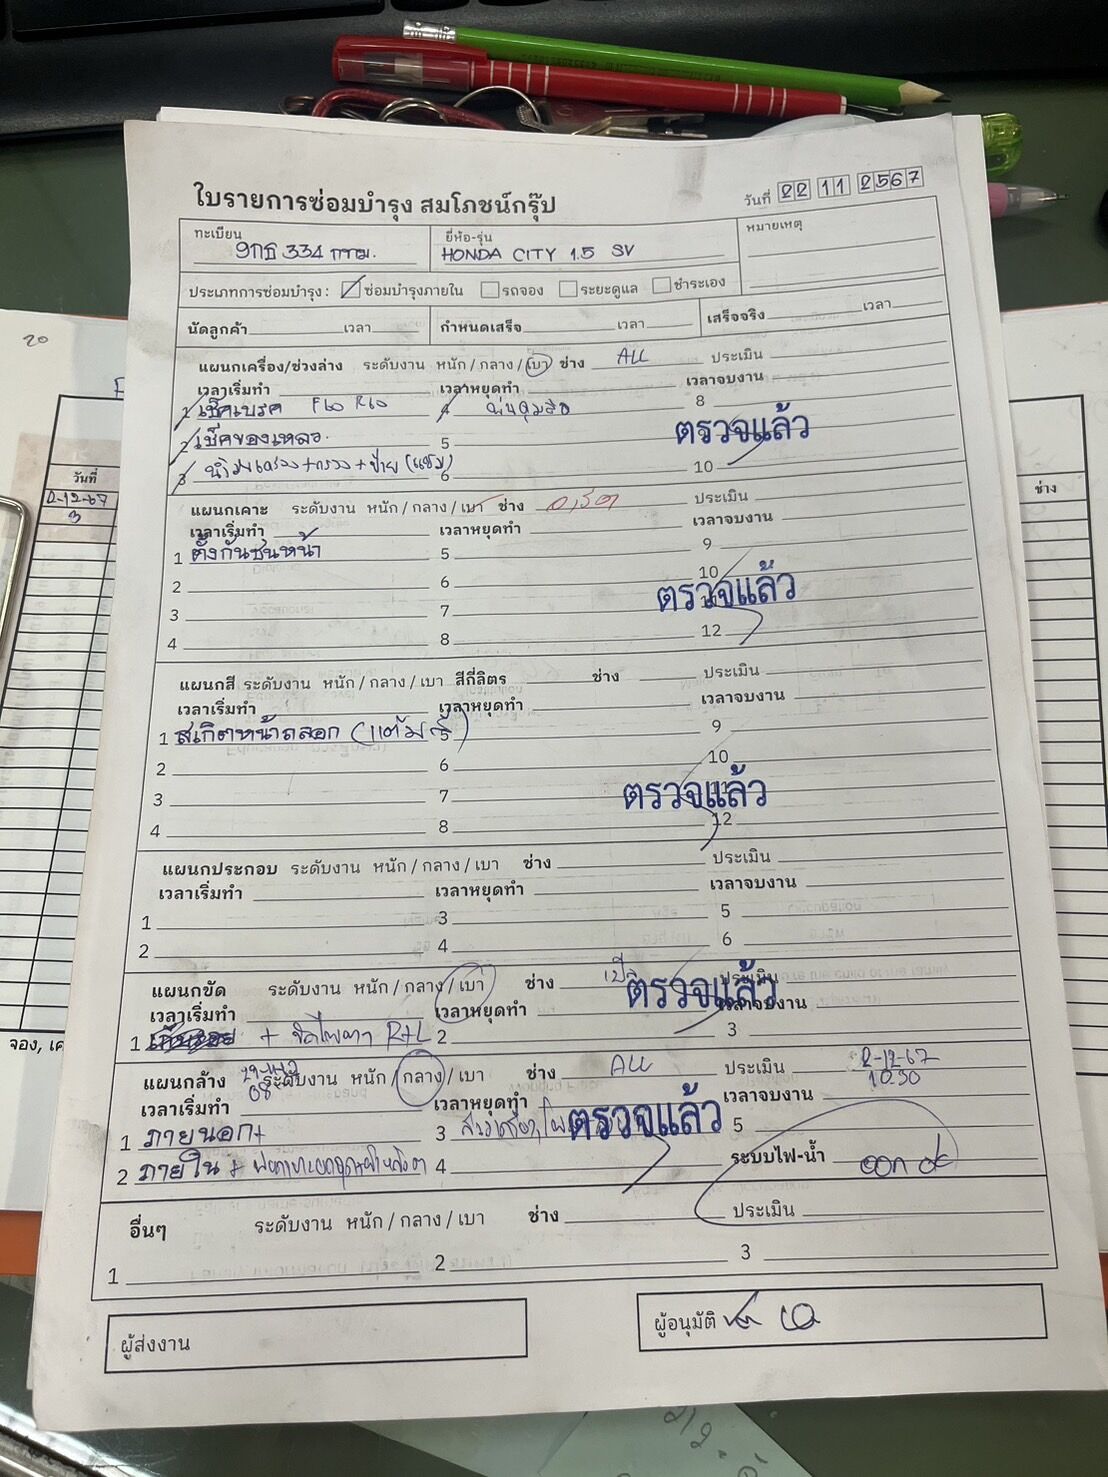 ใบรายการซ่อมบำรุง สมโภชน์กรุ๊ป
วันที่ 22 11 2567
ทะเบียน 9กธ 334 กทม.
ยี่ห้อ-รุ่น HONDA CITY 1.5 SV
หมายเหตุ
ประเภทการซ่อมบำรุง : ซ่อมบำรุงภายใน รถจอง ระยะดูแล ชำระเอง
นัดลูกค้า เวลา กำหนดเสร็จ เวลา เสร็จจริง เวลา
แผนกเครื่อง/ช่วงล่าง ระดับงาน หนัก / กลาง / เบา ช่าง ALL ประเมิน
เวลาเริ่มทำ เวลาหยุดทำ เวลาจบงาน
1 เช็คเบรค F60 R60 4 8
ตรวจแล้ว
2 เช็คของเหลว 5
3 6 10
แผนกเคาะ ระดับงาน หนัก / กลาง / เบา ช่าง ประเมิน
เวลาเริ่มทำ เวลาหยุดทำ เวลาจบงาน
1 ตั้งกันชนหน้า 5 9
2 6 10
ตรวจแล้ว
3 7
4 8 12
แผนกสี ระดับงาน หนัก / กลาง / เบา สีกี่ลิตร ช่าง ประเมิน
เวลาเริ่มทำ เวลาหยุดทำ เวลาจบงาน
1 สเกิตหน้าถลอก (แต้มสี) 5 9
2 6 10
3 7 11
ตรวจแล้ว
4 8 12
แผนกประกอบ ระดับงาน หนัก / กลาง / เบา ช่าง ประเมิน
เวลาเริ่มทำ เวลาหยุดทำ เวลาจบงาน
1 3 5
2 4 6
แผนกขัด ระดับงาน หนัก / กลาง / เบา ช่าง ประเมิน
ตรวจแล้ว
เวลาเริ่มทำ เวลาหยุดทำ เวลาจบงาน
1 + ขัดไฟตา R+L 2 3
แผนกล้าง ระดับงาน หนัก / กลาง / เบา ช่าง ALL ประเมิน 2-12-67
เวลาเริ่มทำ เวลาหยุดทำ เวลาจบงาน 10.30
1 ภายนอก+ 3 5
ตรวจแล้ว
2 ภายใน + 4 ระบบไฟ-น้ำ
อื่นๆ ระดับงาน หนัก / กลาง / เบา ช่าง ประเมิน
1 2 3
ผู้ส่งงาน
ผู้อนุมัติ
20
วันที่
2-12-67
3
จอง, เค
ช่าง